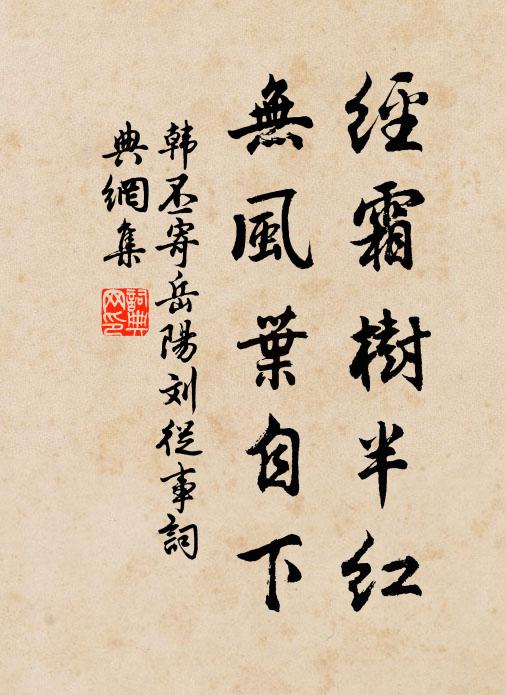 經霜樹半紅
無風葉自下
韩丕寄岳陽刘從事詞
典網集
詞典网印